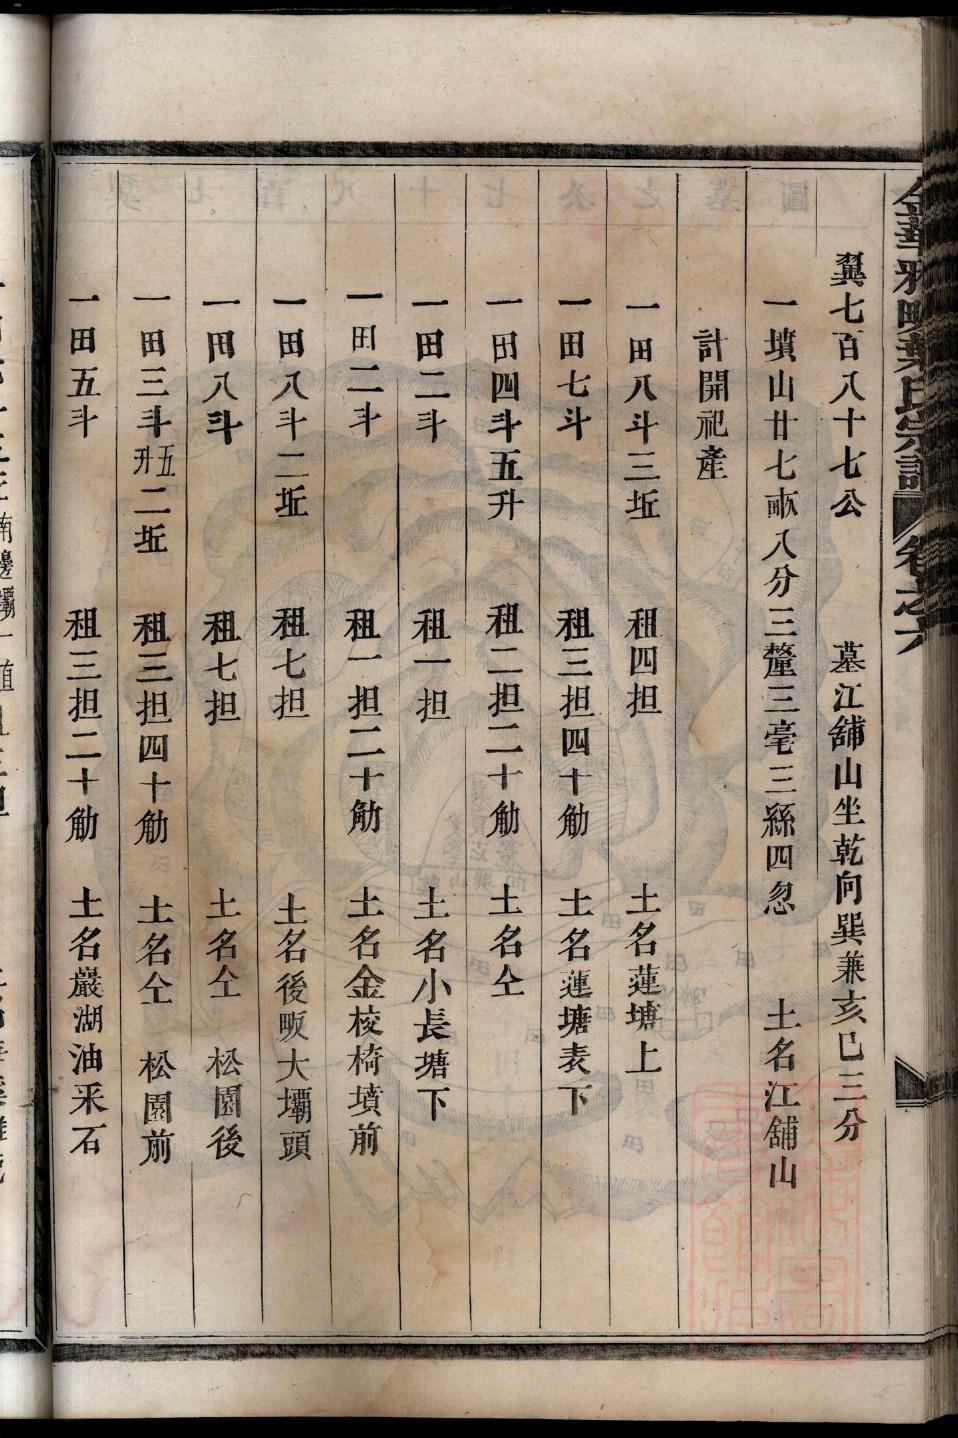 金華雅畈葉氏宗譜 卷之六
翼七百八十七公 墓江舖山坐乾向巽兼亥巳三分
一墳山廿七畝八分三釐三毫三絲四忽 土名江舖山
計開祀產
一田八斗三坵 租四担 土名蓮塘上
一田七斗 租三担四十觔 土名蓮塘表下
一田四斗五升 租二担二十觔 土名仝
一田二斗 租一担 土名小長塘下
一田二斗 租一担二十觔 土名金梭椅墳前
一田八斗二坵 租七担 土名後畈大壩頭
一田八斗 租七担 土名仝 松園後
一田三斗五升二坵 租三担四十觔 土名仝 松園前
一田五斗 租三担二十觔 土名巖湖油釆石